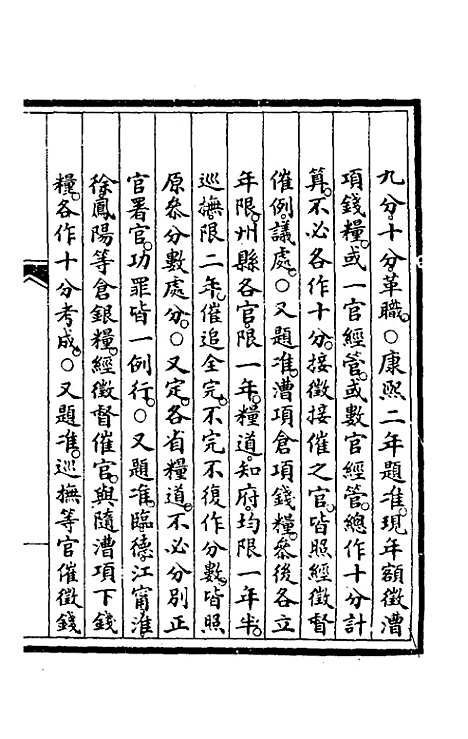 九分十分革職。○康熙二年題准。現年額徵漕
項錢糧。或一官經管。或數官經管。總作十分計
算。不必各作十分。接徵接催之官。皆照經徵督
催例議處。○又題准。漕項倉項錢糧。參後各立
年限。州縣各官。限一年。糧道知府。均限一年半。
巡撫。限二年。催追全完。不完不復作分數。皆照
原參分數處分。○又定。各省糧道。不必分別正
官署官。功罪皆一例行。○又題准。臨德江甯淮
徐鳳陽等倉銀糧。經徵督催官。與隨漕項下錢
糧。各作十分考成。○又題准。巡撫等官催徵錢